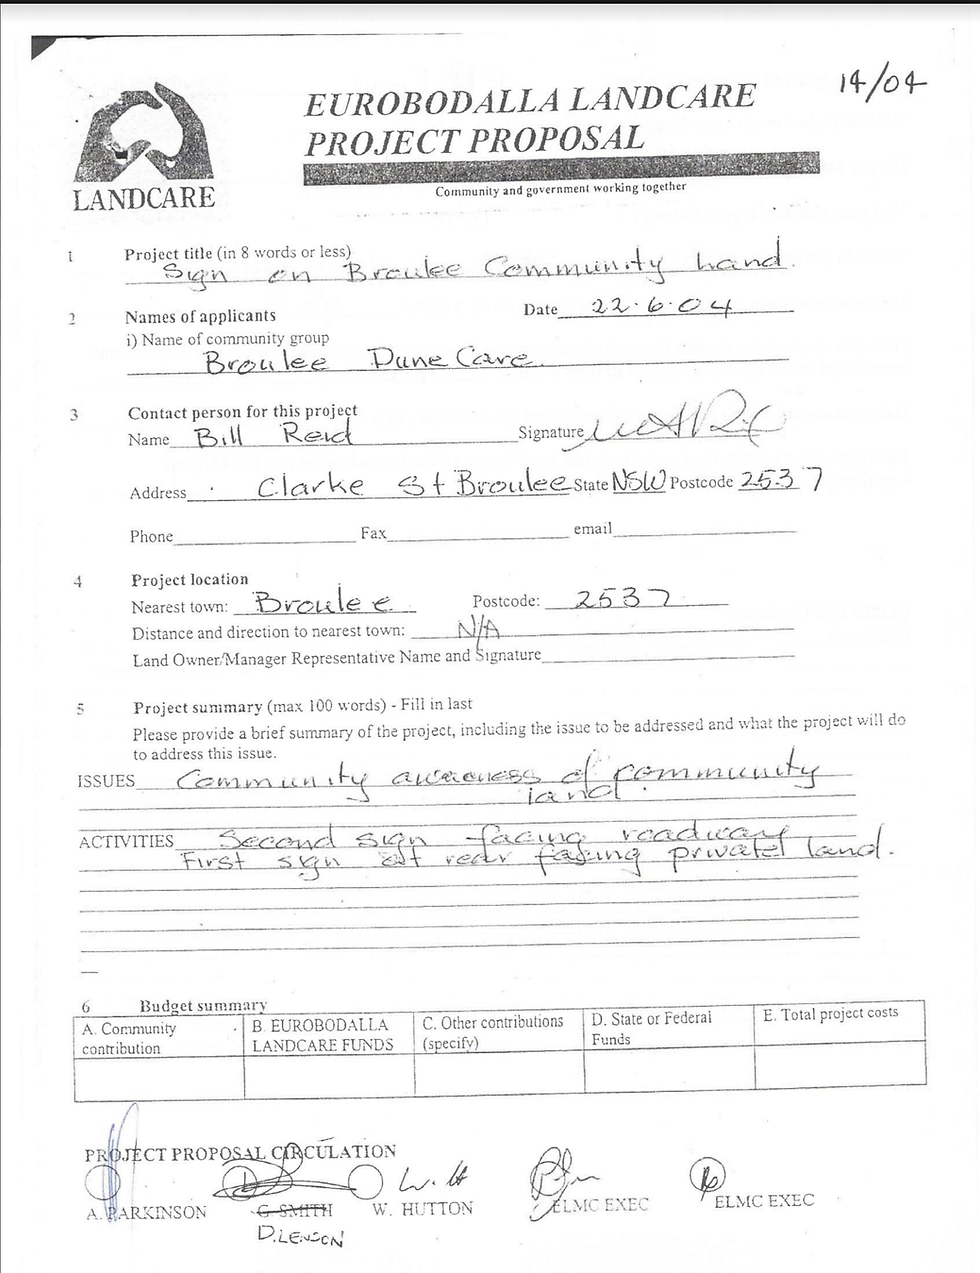 14/04
EUROBODALLA LANDCARE
PROJECT PROPOSAL
LANDCARE
Community and government working together
1 Project title (in 8 words or less)
Sign on Broulee Community Land.
2 Names of applicants Date 22.6.04
i) Name of community group
Broulee Dune Care.
3 Contact person for this project
Name Bill Reid Signature
Address Clarke St Broulee State NSW Postcode 2537
Phone Fax email
4 Project location
Nearest town: Broulee Postcode: 2537
Distance and direction to nearest town: N/A
Land Owner/Manager Representative Name and Signature
5 Project summary (max 100 words) - Fill in last
Please provide a brief summary of the project, including the issue to be addressed and what the project will do
to address this issue.
ISSUES Community awareness of community
land.
ACTIVITIES Second sign facing roadway
First sign at rear facing private land.
6 Budget summary
A. Community contribution
B. EUROBODALLA LANDCARE FUNDS
C. Other contributions (specify)
D. State or Federal Funds
E. Total project costs
PROJECT PROPOSAL CIRCULATION
A. PARKINSON G. SMITH W. HUTTON ELMC EXEC ELMC EXEC
D. LENSON